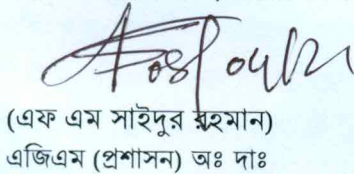 (এফ এম সাইদুর রহমান)
এজিএম (প্রশাসন) অঃ দাঃ